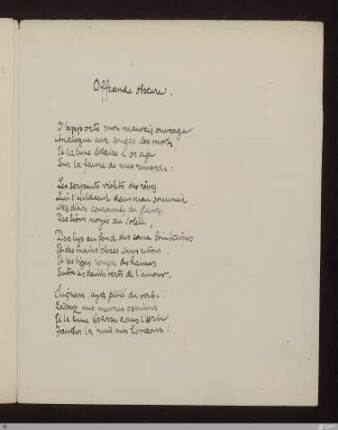 Offrande obscure.
J'apporte mon mauvais ouvrage
Analogue aux songes des morts
Et la lune éclaire l'orage
Sur la faune de mes remords:
Les serpents violets des rêves
Qui s'enlacent dans mon sommeil
Mes désirs couronnés de glaives
Des lions noyés au soleil,
Des lys au fond des eaux lointaines
Et des mains closes sans retour
Et les tiges rouges des haines
Entre les deuils verts de l'amour.
Seigneur, ayez pitié du verbe!
Laissez mes mornes oraisons
Et la lune éparse dans l'herbe
Faucher la nuit aux horizons!